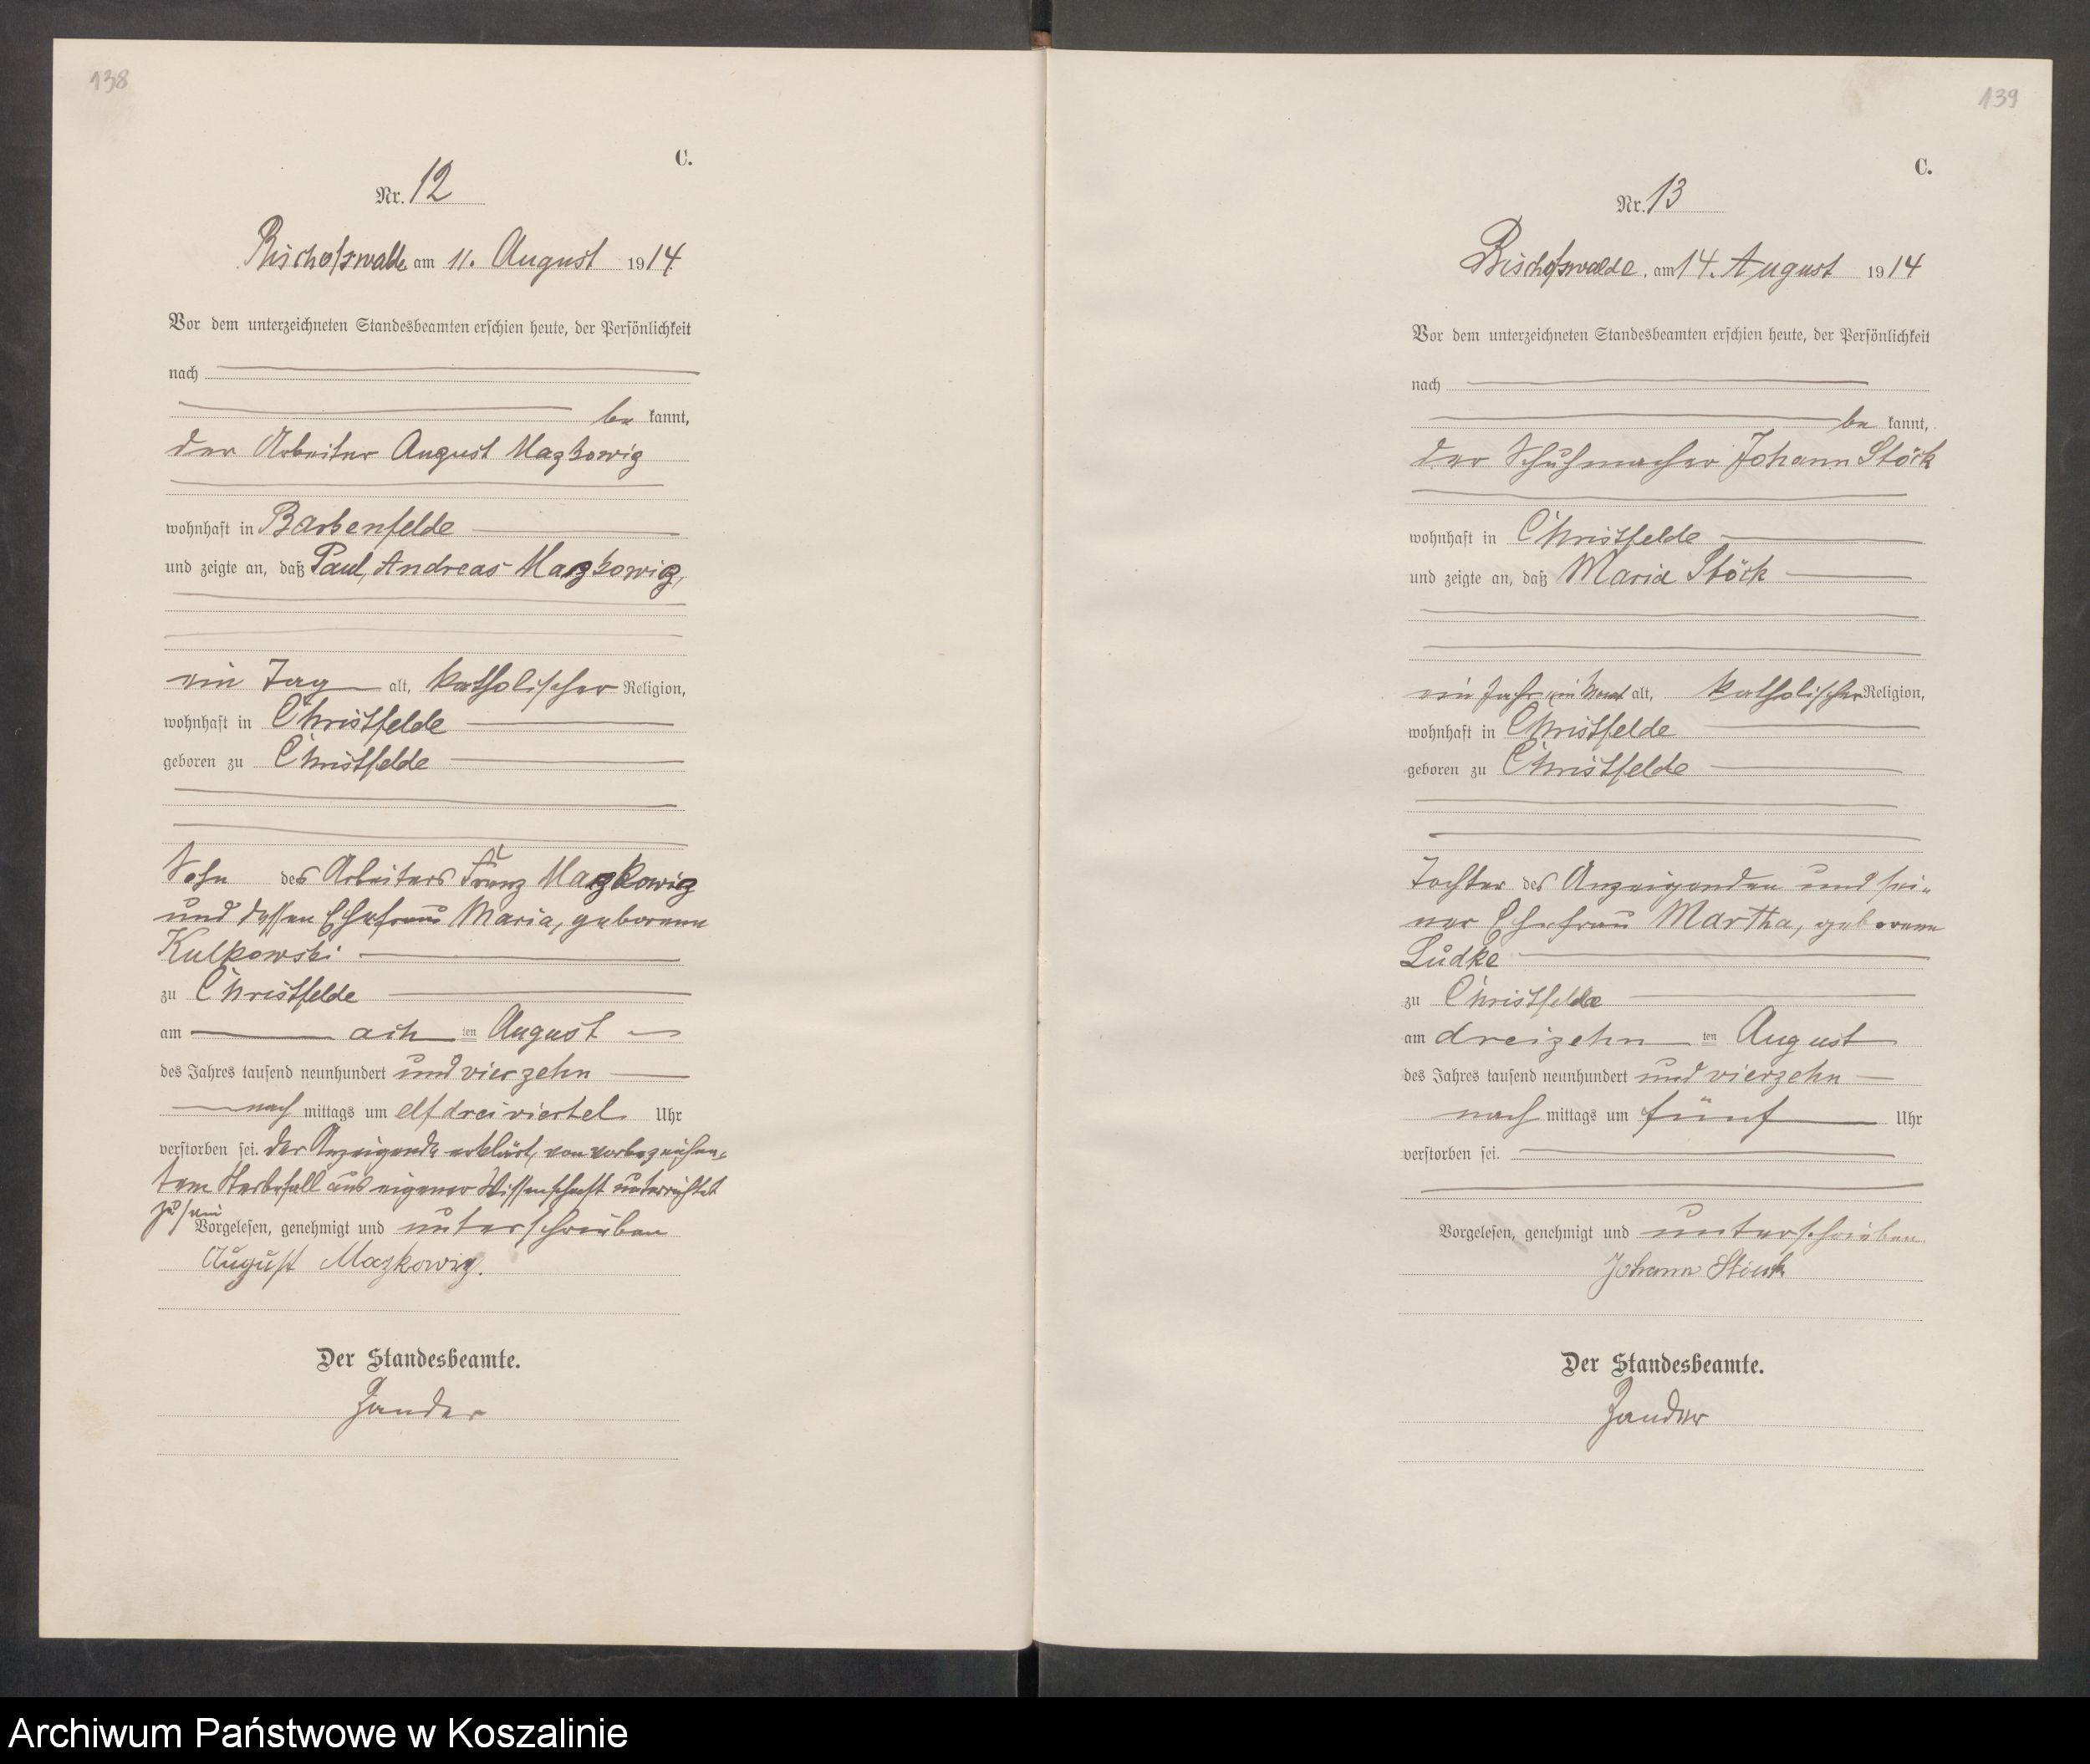 138
C.
Nr. 12
Bischofswalde am 11. August 1914
Vor dem unterzeichneten Standesbeamten erschien heute, der Persönlichkeit
nach
be kannt,
der Arbeiter August Mazkowig
wohnhaft in Barkenfelde
und zeigte an, daß Paul, Andreas Mazkowig,
ein Tag alt, katholischer Religion,
wohnhaft in Christfelde
geboren zu Christfelde
Sohn des Arbeiters Franz Mazkowig
und dessen Ehefrau Maria, geborene
Kulkowski
zu Christfelde
am ach ten August
des Jahres tausend neunhundert und vierzehn
nach mittags um elf dreiviertel Uhr
verstorben sei. Der Anzeigende erklärt, von vorbezeichne-
tem Sterbefall aus eigener Wissenschaft unterrichtet
zu sein
Vorgelesen, genehmigt und unterschrieben
August Mazkowig.
Der Standesbeamte.
Zander
139
C.
Nr. 13
Bischofswalde, am 14. August 1914
Vor dem unterzeichneten Standesbeamten erschien heute, der Persönlichkeit
nach
be kannt,
der Schuhmacher Johann Stöck
wohnhaft in Christfelde
und zeigte an, daß Maria Stöck
ein Jahr, ein Monat alt, katholischer Religion,
wohnhaft in Christfelde
geboren zu Christfelde
Tochter des Anzeigenden und sei-
ner Ehefrau Martha, geborene
Lüdke
zu Christfelde
am dreizehn ten August
des Jahres tausend neunhundert und vierzehn
nach mittags um fünf Uhr
verstorben sei.
Vorgelesen, genehmigt und unterschrieben
Johann Stöck
Der Standesbeamte.
Zander
Archiwum Państwowe w Koszalinie